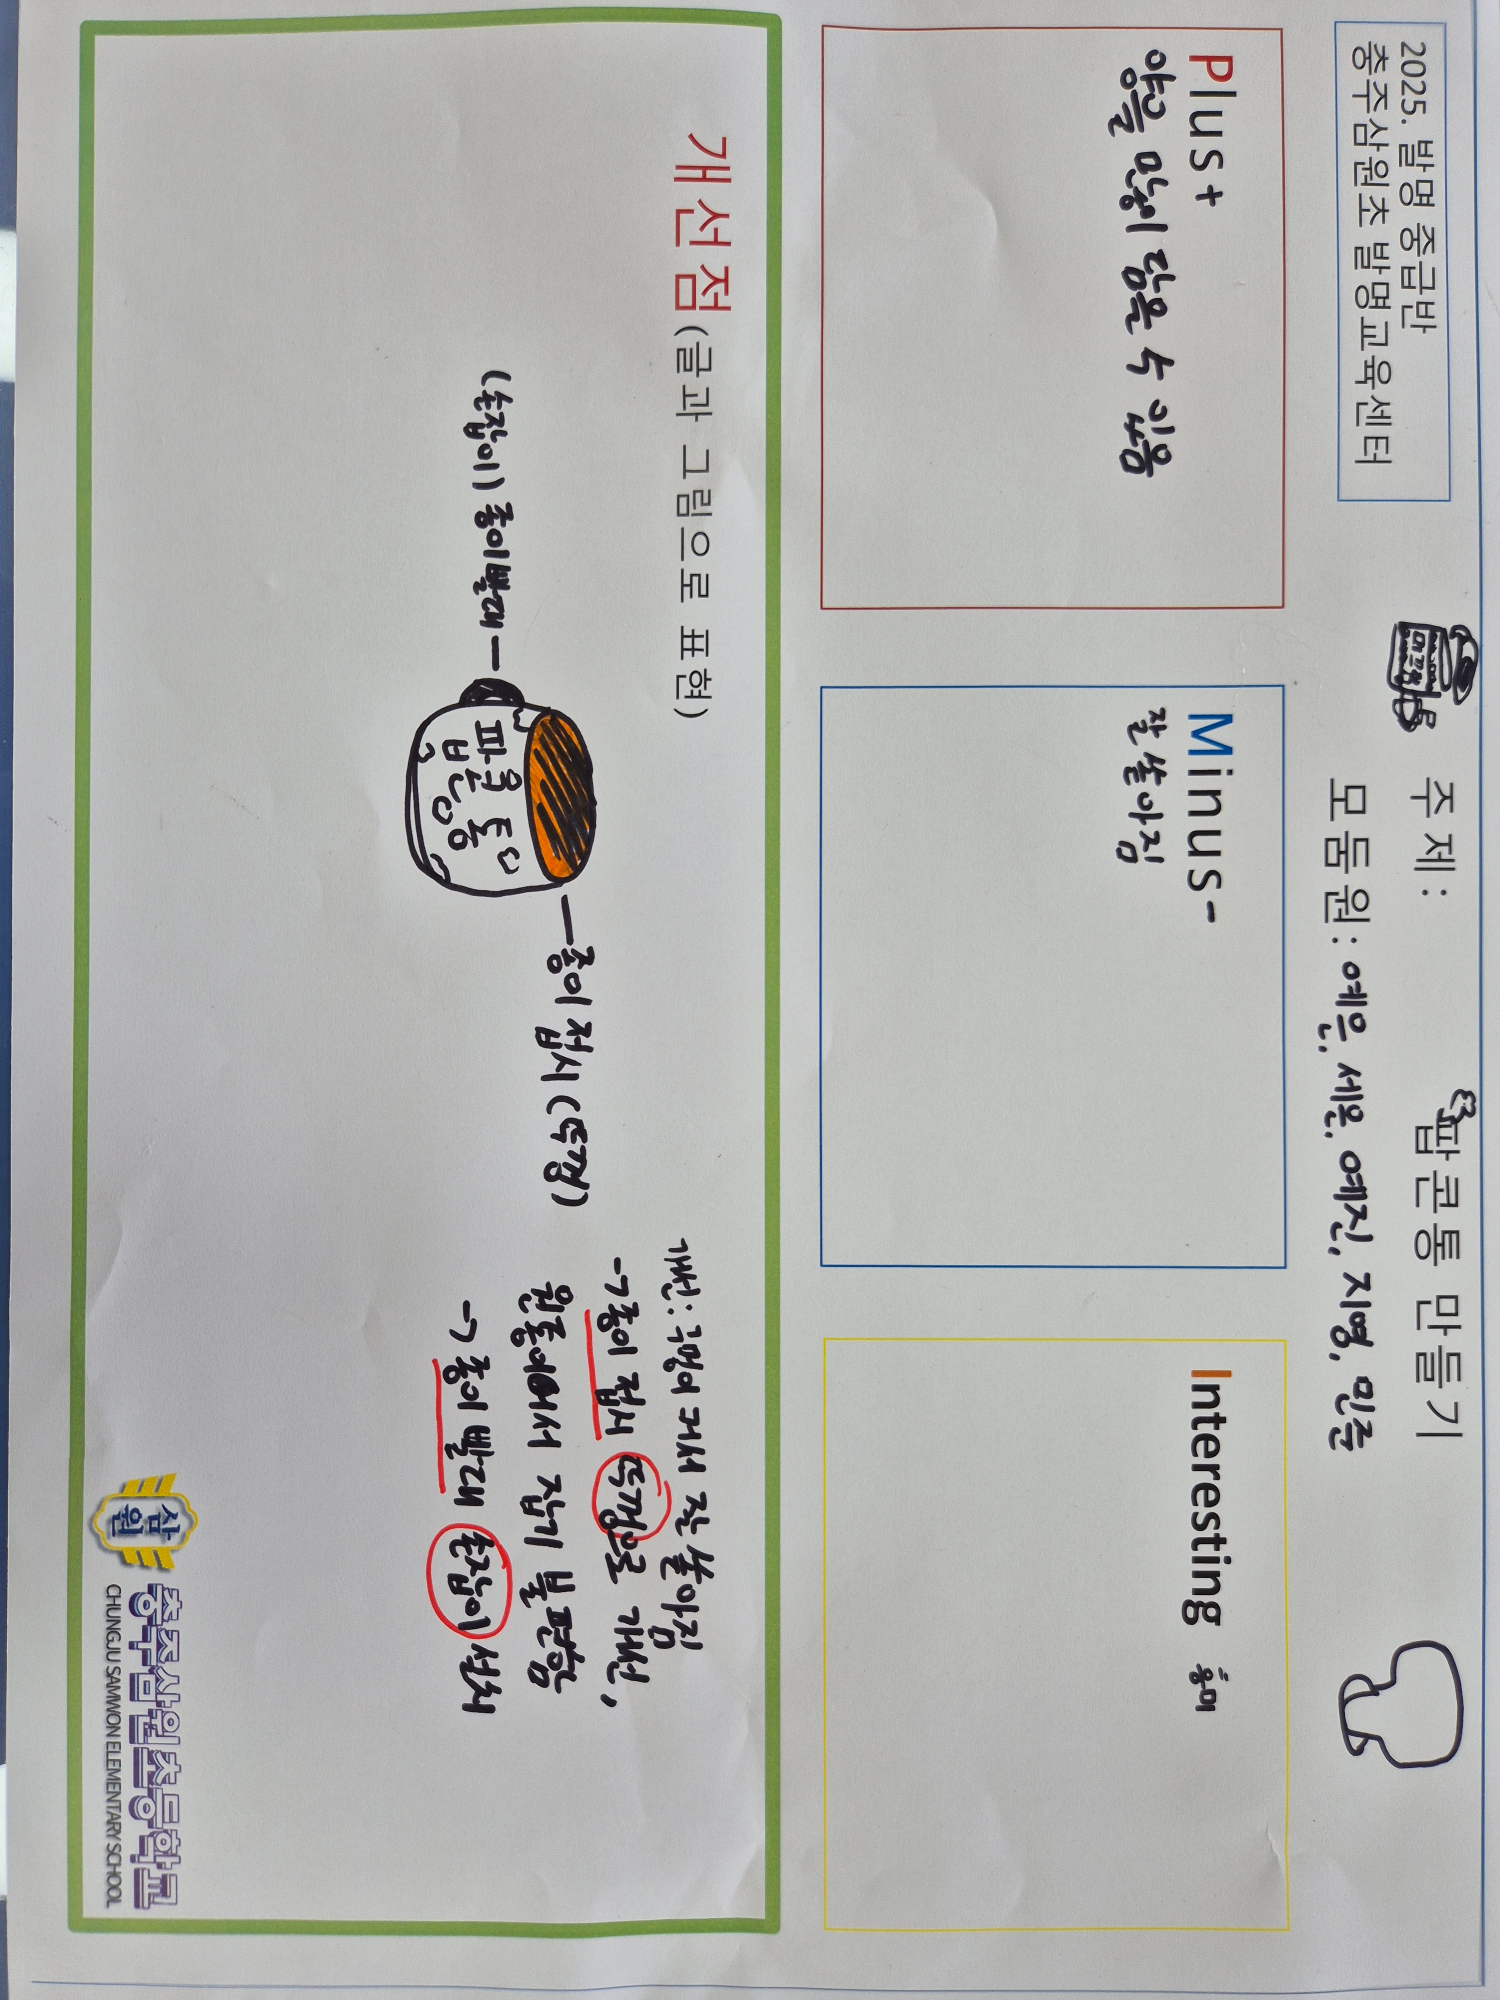 2025. 발명 중급반
충주삼원초 발명교육센터
주제: 팝콘통 만들기
모둠원: 예은, 세은, 예진, 지영, 민준
Plus+
양을 많이 담을 수 있음
Minus-
잘 쏟아짐
Interesting 흥미
개선점(글과 그림으로 표현)
(손잡이) 종이빨대
종이 접시 (뚜껑)
개선: 구멍이 커서 잘 쏟아짐
→ 종이 접시 뚜껑으로 개선,
원통이여서 잡기 불편함
→ 종이 빨대 손잡이 설치
삼원
충주삼원초등학교
CHUNGJU SAMWON ELEMENTARY SCHOOL